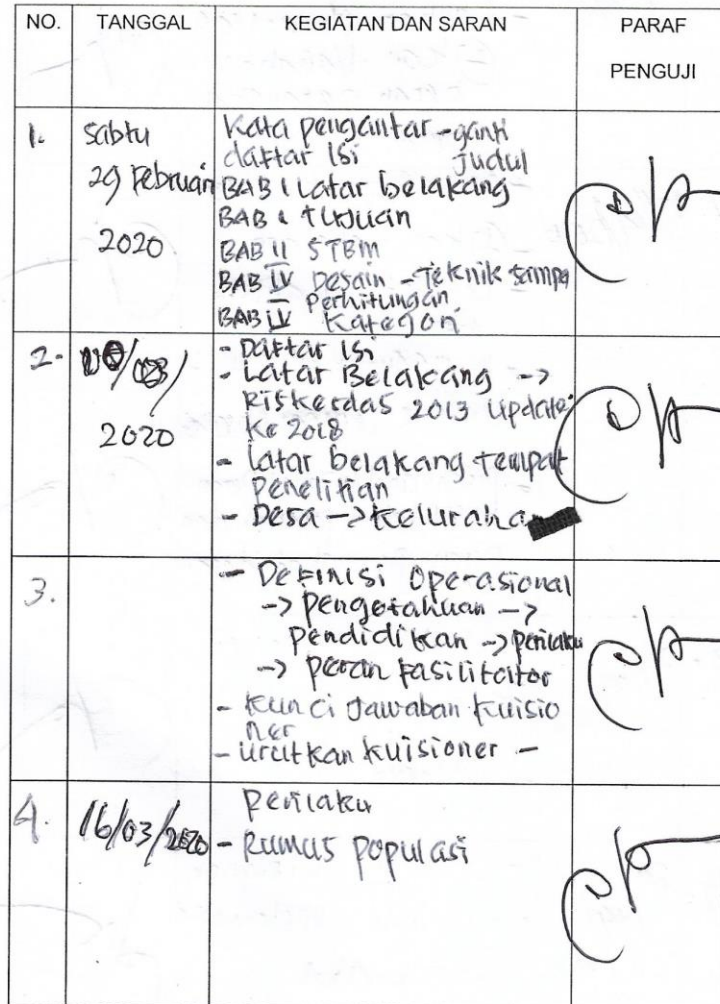 NO. TANGGAL KEGIATAN DAN SARAN PARAF
PENGUJI
1. Sabtu
29 Februari
2020
Kata pengantar - ganti
daftar isi judul
BAB I Latar belakang
BAB I tujuan
BAB II STBM
BAB IV Desain - Teknik sampel
Perhitungan
BAB IV Kategori
2.
2020
- Daftar isi
- Latar Belakang ->
Riskerdas 2013 update
Ke 2018
- latar belakang tempat
penelitian
- Desa -> kelurahan
3.
- Definisi Operasional
-> pengetahuan ->
pendidikan -> perilaku
-> peran fasilitator
- kunci jawaban kuisio
ner
- urutkan kuisioner -
4. 16/03/2020
perilaku
- Rumus populasi